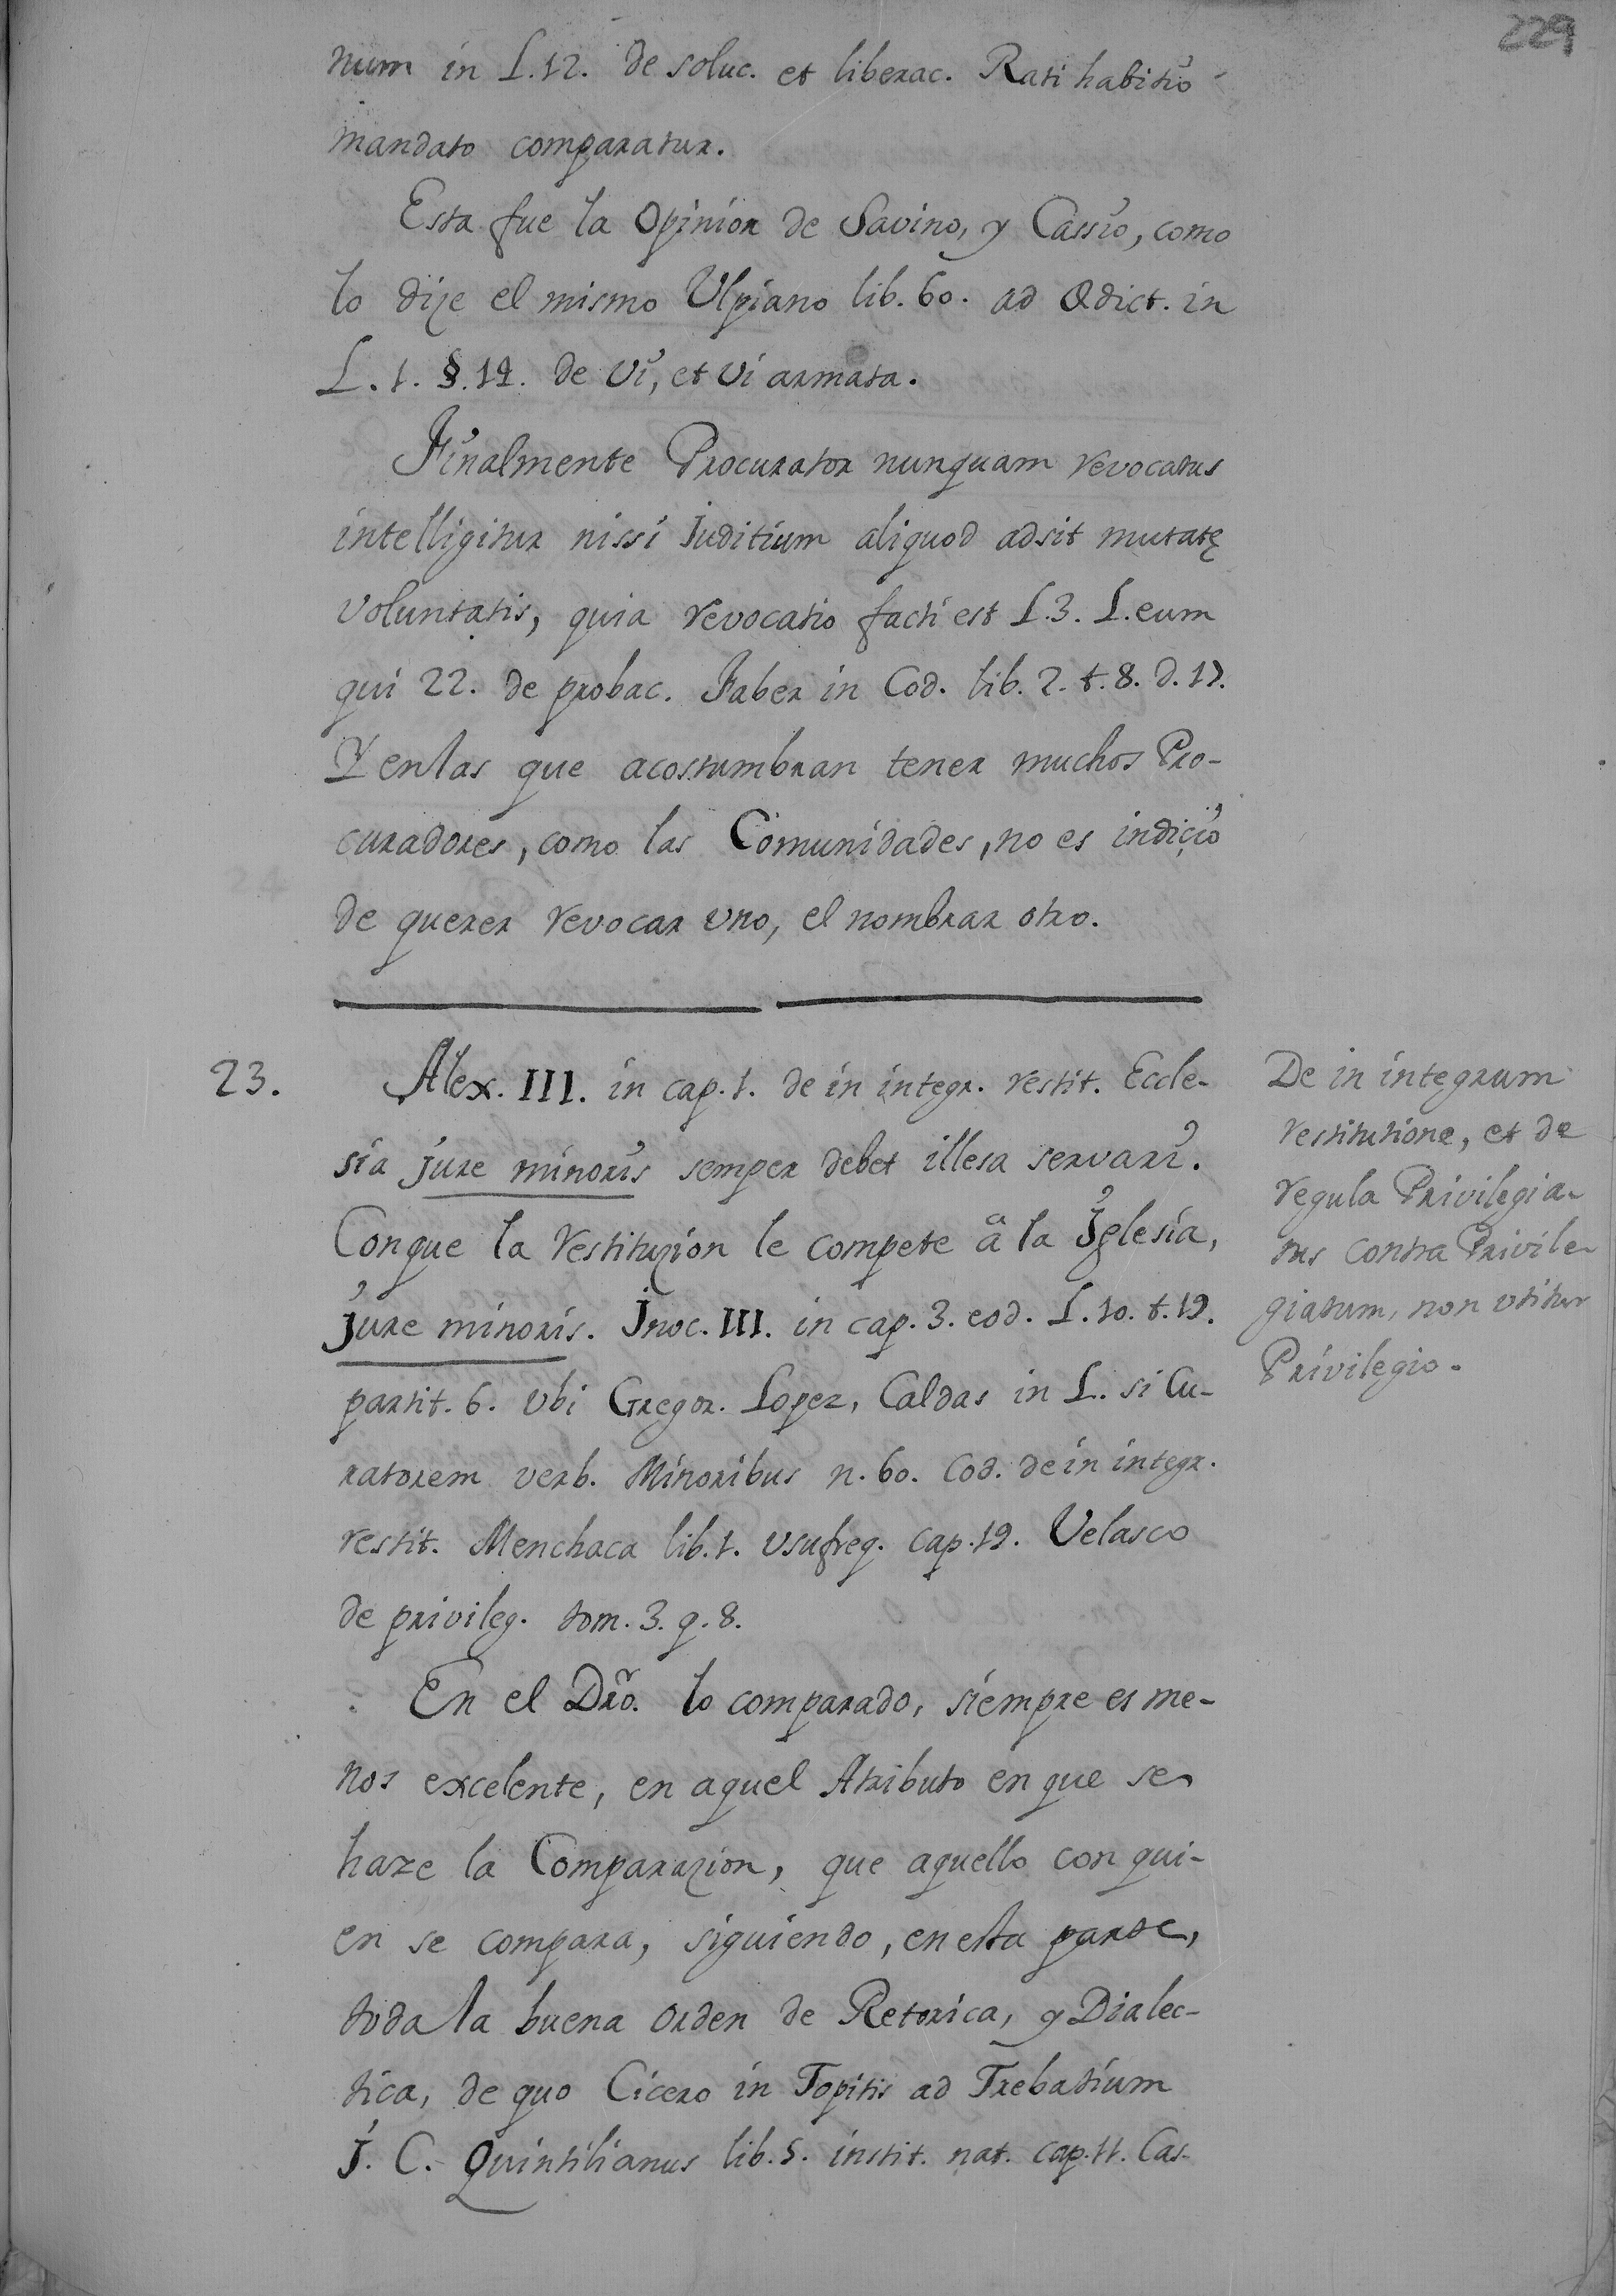 229
num in L.12. de soluc. et liberac. Rati habitio
mandato comparatur.
Esta fue la Opinion de Savino, y Cassio, como
lo dize el mismo Ulpiano lib. 60. ad Edict. in
L. 1. §. 14. de Vi, et Vi armata.
Finalmente Procurator nunquam revocatus
intelligitur nissi Juditium aliquod adsit mutatę
voluntatis, quia revocatio facti est L.3. L.eum
qui 22. de probac. Faber in Cod. lib. 2. t. 8. d. 17.
Y enlas que acostumbran tener muchos Pro-
curadores, como las Comunidades, no es indiçio
de querer revocar uno, el nombrar otro.
23. Alex. III. in cap. 1. de in integr. restit. Eccle-
sia jure minoris semper debet illesa servari.
Conque la restituzion le compete â la Iglesia,
jure minoris. Inoc. III. in cap. 3. eod. L. 10. t. 19.
partit. 6. Ubi Gregor. Lopez, Caldas in L. si Cu-
ratorem verb. Minoribus n. 60. Cod. de in integr.
restit. Menchaca lib. 1. Usufreq. cap. 19. Velasco
de privileg. tom. 3. q. 8.
En el Dr̃o. lo comparado, siempre es me-
nos excelente, en aquel Atributo en que se
haze la Comparazion, que aquello con qui-
en se compara, siguiendo, en esta parte,
toda la buena orden de Retorica, y Dialec-
tica, de quo Cicero in Topitis ad Trebatium
J. C. Quintilianus lib. 5. instit. nat. cap. 11. Cas-
De in integrum
restitutione, et de
regula Privilegia-
tus contra Privile-
giatum, non utitur
Privilegio.